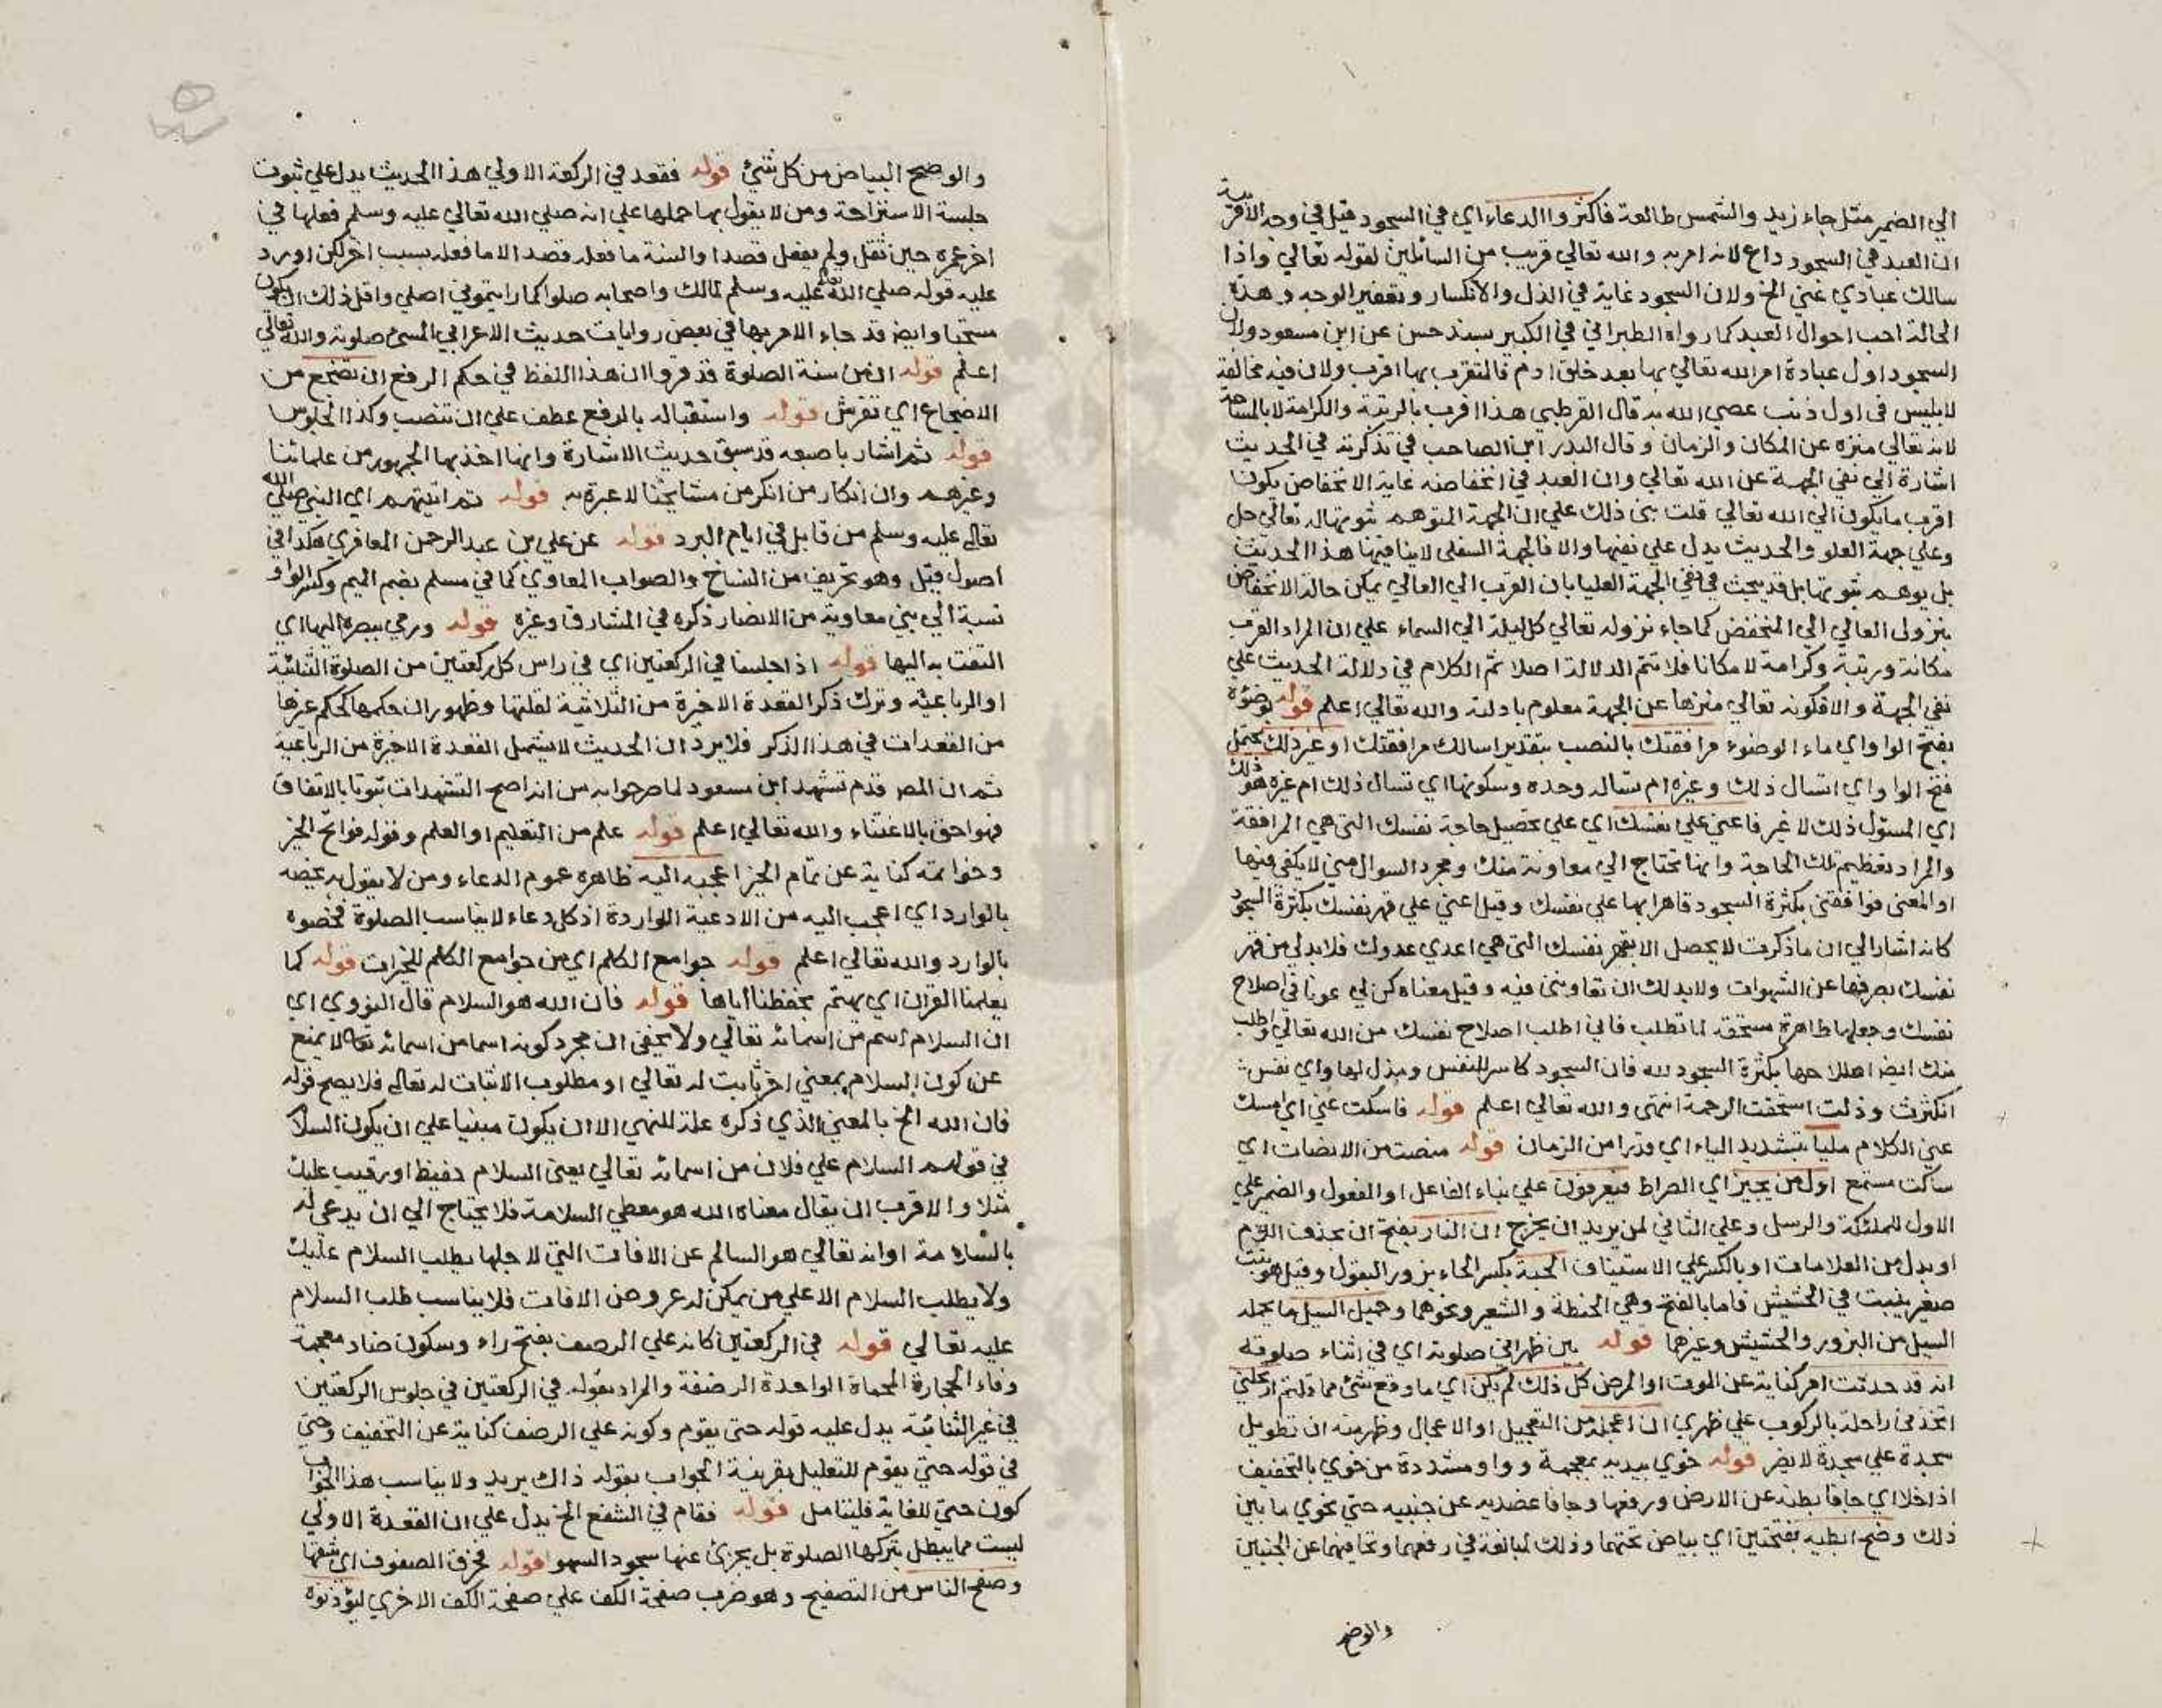 الي الضمير مثل جاء زيد والشمس طالعة فاكثروا الدعاء اي في السجود قيل في وجه الاقربية
ان العبد في السجود داع لانه امر به والله تعالي قريب من السائلين لقوله تعالي واذا
سالك عبادي عني الخ ولان السجود غاية في الذل والانكسار وتعفير الوجه وهذه
الحالة احب احوال العبد كما رواه الطبراني في الكبير بسند حسن عن ابن مسعود ولان
السجود اول عبادة امر الله تعالي بها بعد خلق ادم فالمتقرب بها اقرب ولان فيه مخالفة
لابليس في اول ذنب عصي الله به قال القرطبي هذا اقرب بالرتبة والكرامة لا بالمساحة
لانه تعالي منزه عن المكان والزمان وقال البدر ابن الصاحب في تذكرته في الحديث
اشارة الي نفي الجهة عن الله تعالي وان العبد في انخفاضه غاية الانخفاض يكون
اقرب ما يكون الي الله تعالي قلت بني ذلك علي ان الجهة المتوهم ثبوتها له تعالي جل
وعلي جهة العلو والحديث يدل علي نفيها والا فالجهة السفلي لا ينافيها هذا الحديث
بل يوهم ثبوتها بل قد يبحث في نفي الجهة العليا بان القرب الي العالي يمكن حالة الانخفاض
بنزول العالي الي المنخفض كما جاء نزوله تعالي كل ليلة الي السماء علي ان المراد القرب
مكانة ورتبة وكرامة لا مكانا فلا تتم الدلالة اصلا ثم الكلام في دلالة الحديث علي
نفي الجهة والا فكونه تعالي منزها عن الجهة معلوم بادلته والله تعالي اعلم قوله بوضوءه
بفتح الواو اي ماء الوضوء مرافقتك بالنصب بتقدير اسالك مرافقتك او غير ذلك يحتمل
فتح الواو اي اتسال ذلك وغيره ام تساله وحده وسكونها اي تسال ذلك ام غيره هو ذلك
اي المسئول ذلك لا غير فاعني علي نفسك اي علي تحصيل حاجة نفسك التي هي المرافقة
والمراد تعظيم تلك الحاجة وانها تحتاج الي معاونة منك ومجرد السوال مني لا يكفي فيها
او المعني فوافقني بكثرة السجود قاهرا بها علي نفسك وقيل اعني علي قهر نفسك بكثرة السجود
كانه اشار الي ان ما ذكرت لا يحصل الا بقهر نفسك التي هي اعدي عدوك فلا بد لي من قهر
نفسك بصرفها عن الشهوات ولا بد لك ان تعاونني فيه وقيل معناه كن لي عونا في اصلاح
نفسك وجعلها طاهرة مستحقة لما تطلب فاني اطلب اصلاح نفسك من الله تعالي واطلب
منك ايضا اصلاحها بكثرة السجود لله فان السجود كاسر للنفس ومذل لها واي نفس
انكسرت وذلت استحقت الرحمة انتهي والله تعالي اعلم قوله فاسكت عني اي امسك
عني الكلام مليا بتشديد الياء اي قدرا من الزمان قوله منصت من الانصات اي
ساكت مستمع اول من يجيز اي الصراط فيعرفون علي بناء الفاعل او المفعول والضمير علي
الاول للملئكة والرسل وعلي الثاني لمن يريد ان يخرج ان النار بفتح ان بحذف اللام
او بدل من العلامات او بالكسر علي الاستيناف الحبة بكسر الحاء بزور البقول وقيل هو نبت
صغير ينبت في الحشيش فاما بالفتح وهي الحنطة والشعير ونحوهما وحميل السيل ما يحمله
السيل من البزور والحشيش وغيرها قوله بين ظهراني صلوته اي في اثناء صلوته
انه قد حدثت امر كناية عن الموت او المرض كل ذلك لم يكن اي ما وقع شئ مما قلتم ارتحلني
اتخذني راحلة بالركوب علي ظهري ان اعجله من التعجيل او الاعجال وظهر منه ان تطويل
سجدة علي سجدة لا يضر قوله خوي بيديه بمعجمة وواو مشددة من خوي بالتخفيف
اذا خلا اي جافا بطنه عن الارض ورفعها وجافا عضديه عن جنبيه حتي يخوي ما بين
ذلك وضح ابطيه بفتحتين اي بياض تحتهما وذلك لمبالغة في رفعهما وتجافيهما عن الجنبين
والوضح
والوضح البياض من كل شئ قوله فقعد في الركعة الاولي هذا الحديث يدل علي ثبوت
جلسة الاستراحة ومن لا يقول بها حملها علي انه صلي الله تعالي عليه وسلم فعلها في
اخر عمره حين ثقل ولم يفعل قصدا والسنة ما فعله قصدا لا ما فعله بسبب اخر لكن اورد
عليه قوله صلي الله تعالي عليه وسلم لمالك واصحابه صلوا كما رايتموني اصلي واقل ذلك ان يكون
مستحبا وايضا قد جاء الامر بها في بعض روايات حديث الاعرابي المسئ صلوته والله تعالي
اعلم قوله ان من سنة الصلوة قد قرروا ان هذا اللفظ في حكم الرفع ان تضجع من
الاضجاع اي تفرش قوله واستقباله بالرفع عطف علي ان تنصب وكذا الجلوس
قوله ثم اشار باصبعه قد سبق حديث الاشارة وانها اخذ بها الجمهور من علمائنا
وغيرهم وان انكار من انكر من مشايخنا لا عبرة به قوله ثم اتيتهم اي النبي صلي الله
تعالي عليه وسلم من قابل في ايام البرد قوله عن علي بن عبد الرحمن المعافري هكذا في
اصول قيل وهو تحريف من النساخ والصواب المعاوي كما في مسلم بضم الميم وكسر الواو
نسبة الي بني معاوية من الانصار ذكره في المشارق وغيره قوله ورمي ببصره اليها اي
التفت به اليها قوله اذا جلسنا في الركعتين اي في راس كل ركعتين من الصلوة الثنائية
او الرباعية وترك ذكر القعدة الاخيرة من الثلاثية لقلتها وظهور ان حكمها كحكم غيرها
من القعدات في هذا الذكر فلا يرد ان الحديث لا يشمل القعدة الاخيرة من الرباعية
ثم ان المص قدم تشهد ابن مسعود لما صرحوا به من انه اصح التشهدات ثبوتا بالاتفاق
فهو احق بالاعتناء والله تعالي اعلم قوله علم من التعليم او العلم وقوله فواتح الخير
وخواتمه كناية عن تمام الخير اعجبه اليه ظاهره عموم الدعاء ومن لا يقول به يخصه
بالوارد اي اعجب اليه من الادعية الواردة اذ كل دعاء لا يناسب الصلوة فخصوه
بالوارد والله تعالي اعلم قوله جوامع الكلم اي من جوامع الكلم للخيرات قوله كما
يعلمنا القران اي يهتم بحفظنا اياها قوله فان الله هو السلام قال النووي اي
ان السلام اسم من اسمائه تعالي ولا يخفي ان مجرد كونه اسما من اسمائه تعالي لا يمنع
عن كون السلام بمعني اخر ثابت له تعالي او مطلوب الاثبات له تعالي فلا يصح قوله
فان الله الخ بالمعني الذي ذكره علة للنهي الا ان يكون مبنيا علي ان يكون السلام
في قولهم السلام علي فلان من اسمائه تعالي يعني السلام حفيظ او رقيب عليك
مثلا والاقرب ان يقال معناه الله هو معطي السلامة فلا يحتاج الي ان يدعي له
بالسلامة او انه تعالي هو السالم عن الافات التي لاجلها يطلب السلام عليك
ولا يطلب السلام الا علي من يمكن له عروض الافات فلا يناسب طلب السلام
عليه تعالي قوله في الركعتين كانه علي الرضف بفتح راء وسكون ضاد معجمة
وفاء الحجارة المحماة الواحدة الرضفة والمراد بقوله في الركعتين في جلوس الركعتين
في غير الثنائية يدل عليه قوله حتي يقوم وكونه علي الرضف كناية عن التخفيف وحتي
في قوله حتي يقوم للتعليل بقرينة الجواب بقوله ذاك يريد ولا يناسب هذا الجواب
كون حتي للغاية فليتامل قوله فقام في الشفع الخ يدل علي ان القعدة الاولي
ليست مما يبطل بتركها الصلوة بل يجزئ عنها سجود السهو قوله فخرق الصفوف اي شقها
وصفح الناس من التصفيح وهو ضرب صفحة الكف علي صفحة الكف الاخري ليؤذنوه